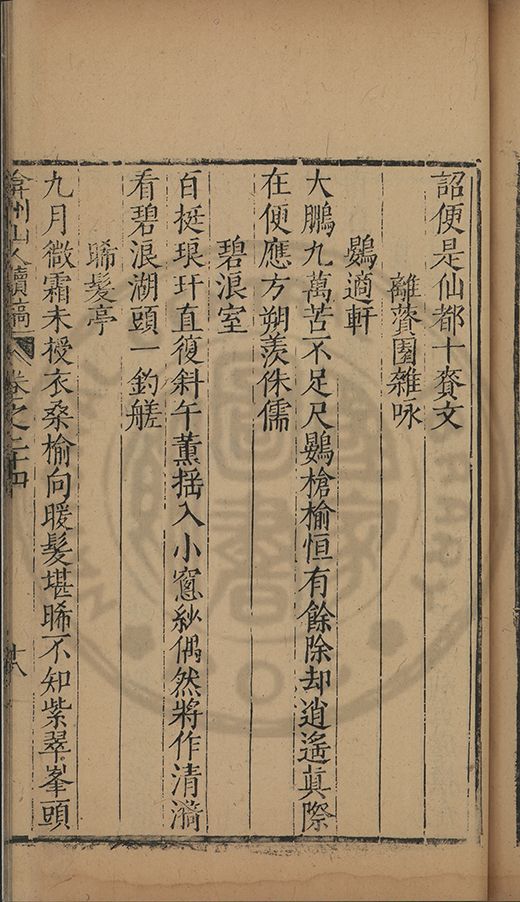 詔便是仙都十賚文
離薋園雜咏
鷃適軒
大鵬九萬苦不足尺鷃槍榆恒有餘除却逍遙真際
在便應方朔羨侏儒
碧浪室
百挺琅玕直復斜午薰揺入小窻紗偶然將作清漪
看碧浪湖頭一釣艖
晞髮亭
九月微霜未授衣桑榆向暖髮堪晞不知紫翠峯頭
弇州山人續稿 卷之二十四 十八